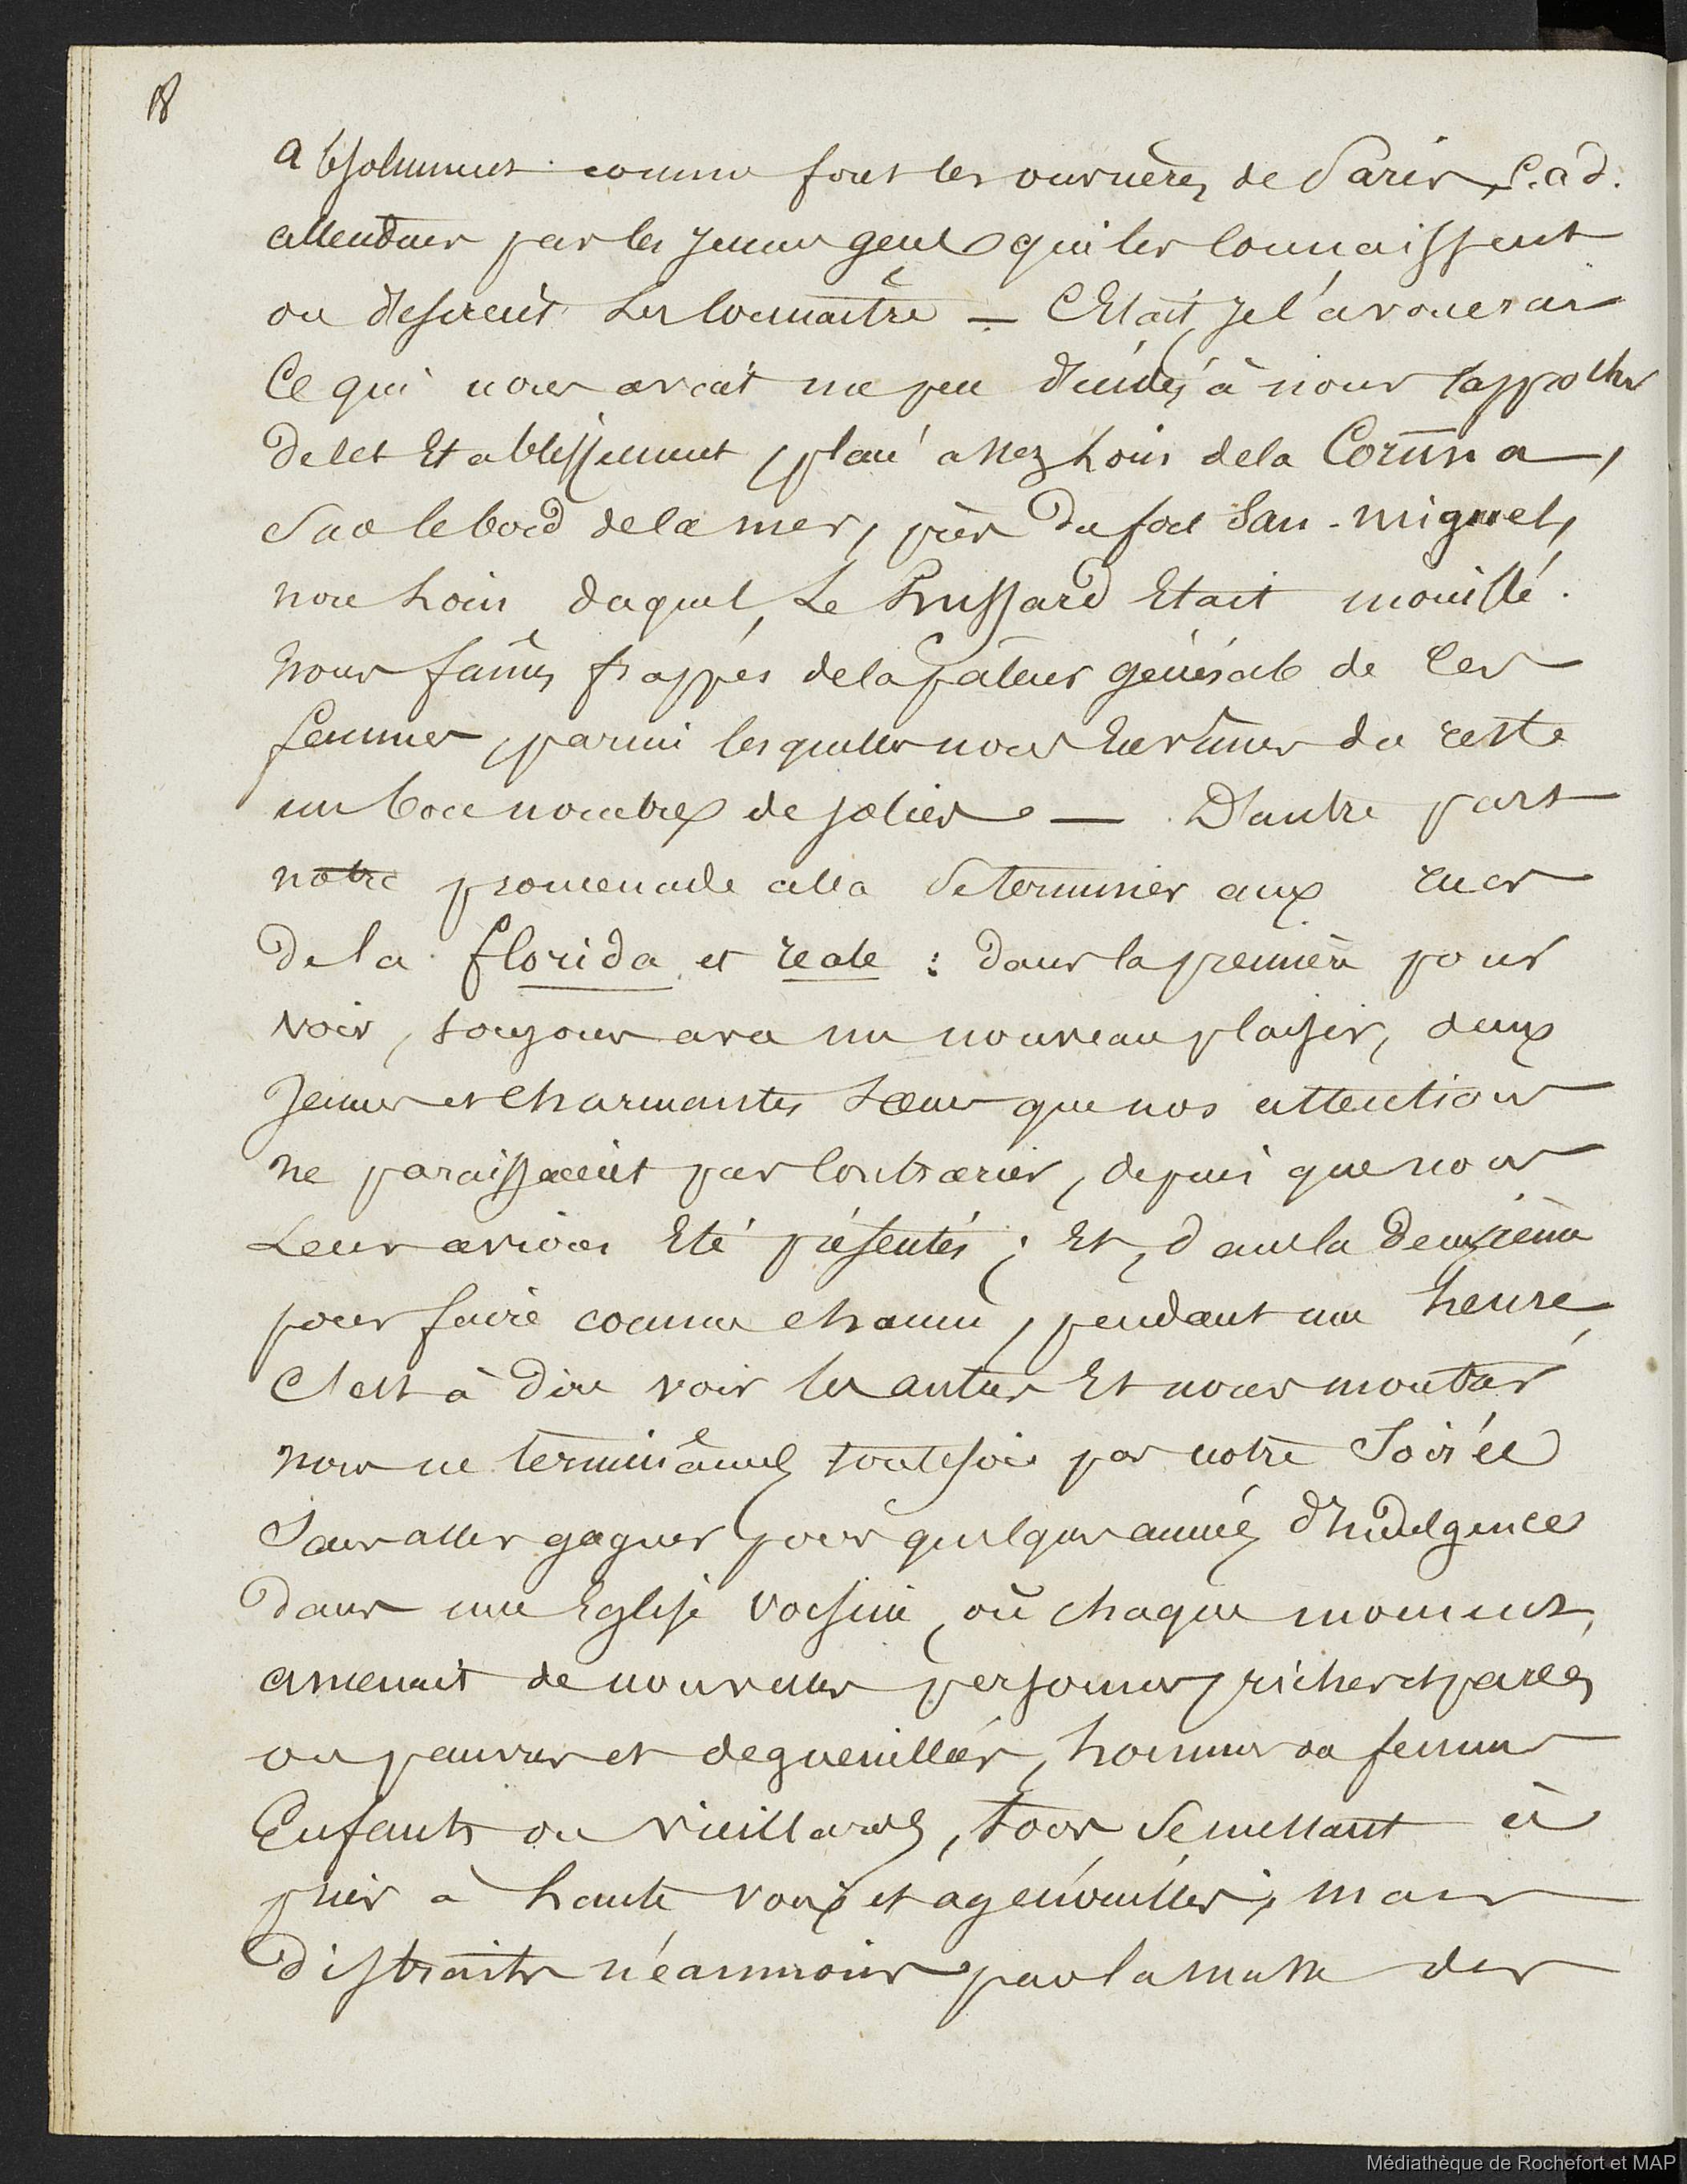 18
absolument comme font les ouvrières de Paris, c. a d.
attendues par les jeunes gens qui les connaissent
ou desirent les connaître — C'Etait, je l'avouerai
ce qui nous avait un peu décidés à nous rapprocher
de cet Etablissement, placé assez loin de la Coruna,
sur le bord de la mer, près du fort San-Miguel,
non loin duquel, Le Hussard Etait mouillé.
Nous fûmes frappés de la pâleur générale de ces
femmes, parmi lesquelles nous en vîmes du reste
un bon nombre de jolies — D'autre part
notre promenade alla se terminer aux rues
de la florida et reale : dans la première pour
voir, toujours avec un nouveau plaisir, deux
jeunes et charmantes sœurs que nos attentions
ne paraissaient pas contrarier, depuis que nous
Leur avions Eté présentés ; Et, dans la deuxième
pour faire comme chacun, pendant une heure,
c'est à dire voir les autres Et nous montrer
nous ne terminâmes toutefois pas notre soirée
sans aller gagner pour quelques années d'Indulgences
dans une Eglise voisine, où chaque moment,
amenait de nouvelles personnes, riches et parées
ou pauvres et deguenillées, hommes ou femmes
Enfants ou vieillards, tous se mettant à
prier à haute voix et agenouillés, mais
distraits néanmoins par la masse des
Médiathèque de Rochefort et MAP